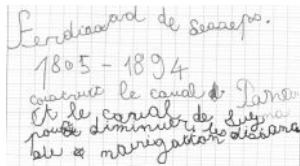 Ferdinand de Lesseps.
1805 - 1894
construit le canal de Panama
et le canal de Suez
pour diminuer les distances
de navigation